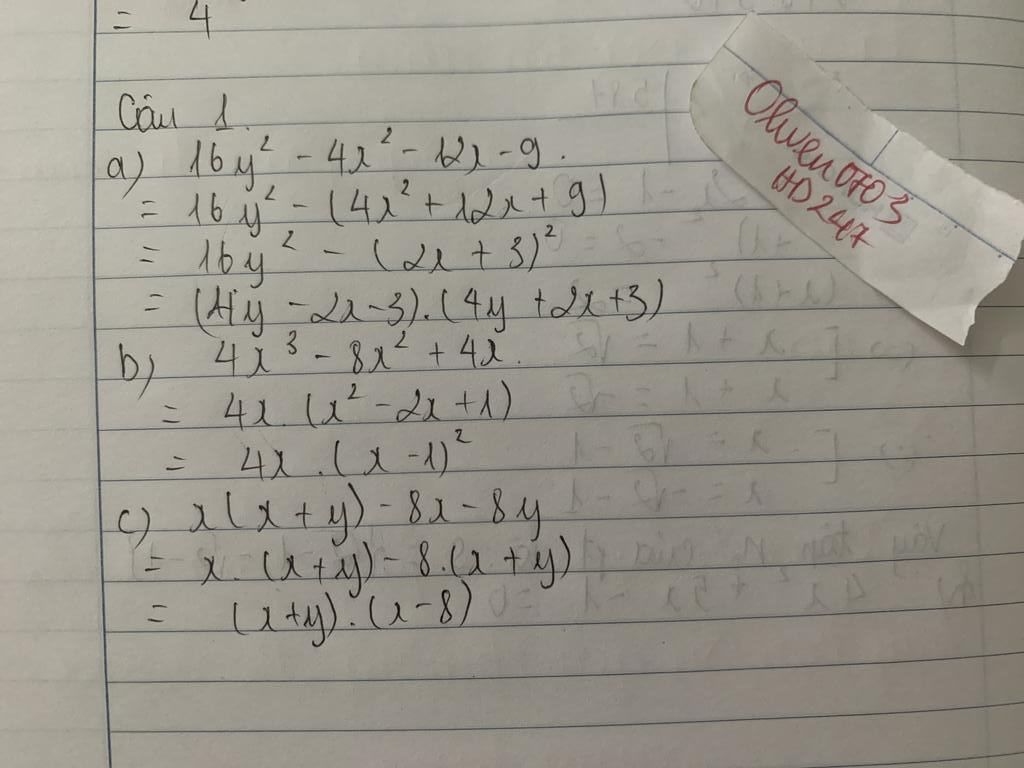 = 4
Câu 1.
a) 16y² - 4x² - 12x - 9.
= 16y² - (4x² + 12x + 9)
= 16y² - (2x + 3)²
= (4y - 2x - 3).(4y + 2x + 3)
b) 4x³ - 8x² + 4x.
= 4x.(x² - 2x + 1)
= 4x.(x - 1)²
c) x(x + y) - 8x - 8y
= x.(x + y) - 8.(x + y)
= (x + y).(x - 8)
HD247